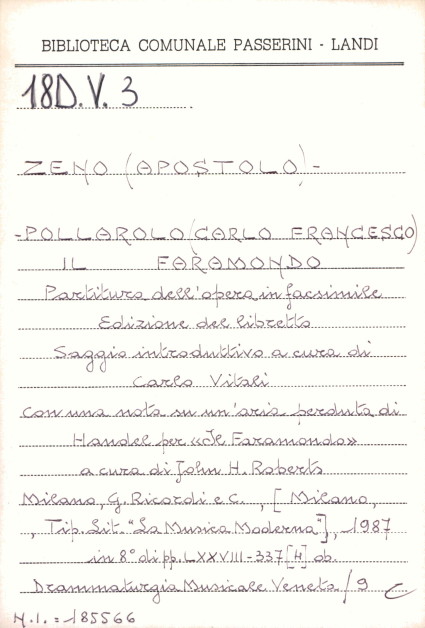 BIBLIOTECA COMUNALE PASSERINI - LANDI
18D.V. 3
ZENO (APOSTOLO) -
-POLLAROLO (CARLO FRANCESCO)
IL FARAMONDO
Partitura dell'opera in facsimile
Edizione del libretto
Saggio introduttivo a cura di
Carlo Vitali
con una nota su un'aria perduta di
Handel per «Il Faramondo»
a cura di John H. Roberts
Milano, G. Ricordi e C., [Milano,
, Tip. Lit. "La Musica Moderna"], 1987
in 8° di pp. LXXVIII-337 [4] ob.
Drammaturgia Musicale Veneta / 9
N.I. = 185566